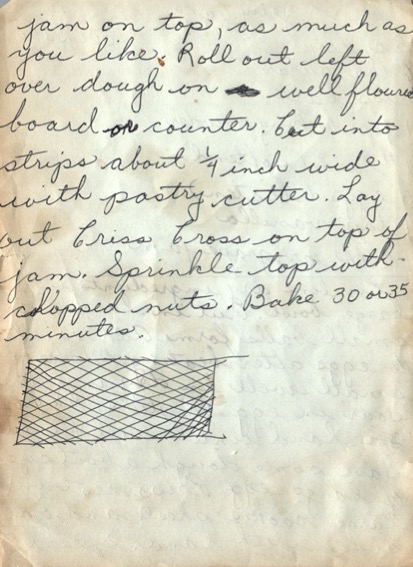 jam on top, as much as
you like. Roll out left
over dough on well floured
board or counter. Cut into
strips about 1/4 inch wide
with pastry cutter. Lay
out Criss Cross on top of
jam. Sprinkle top with
chopped nuts. Bake 30 or 35
minutes.